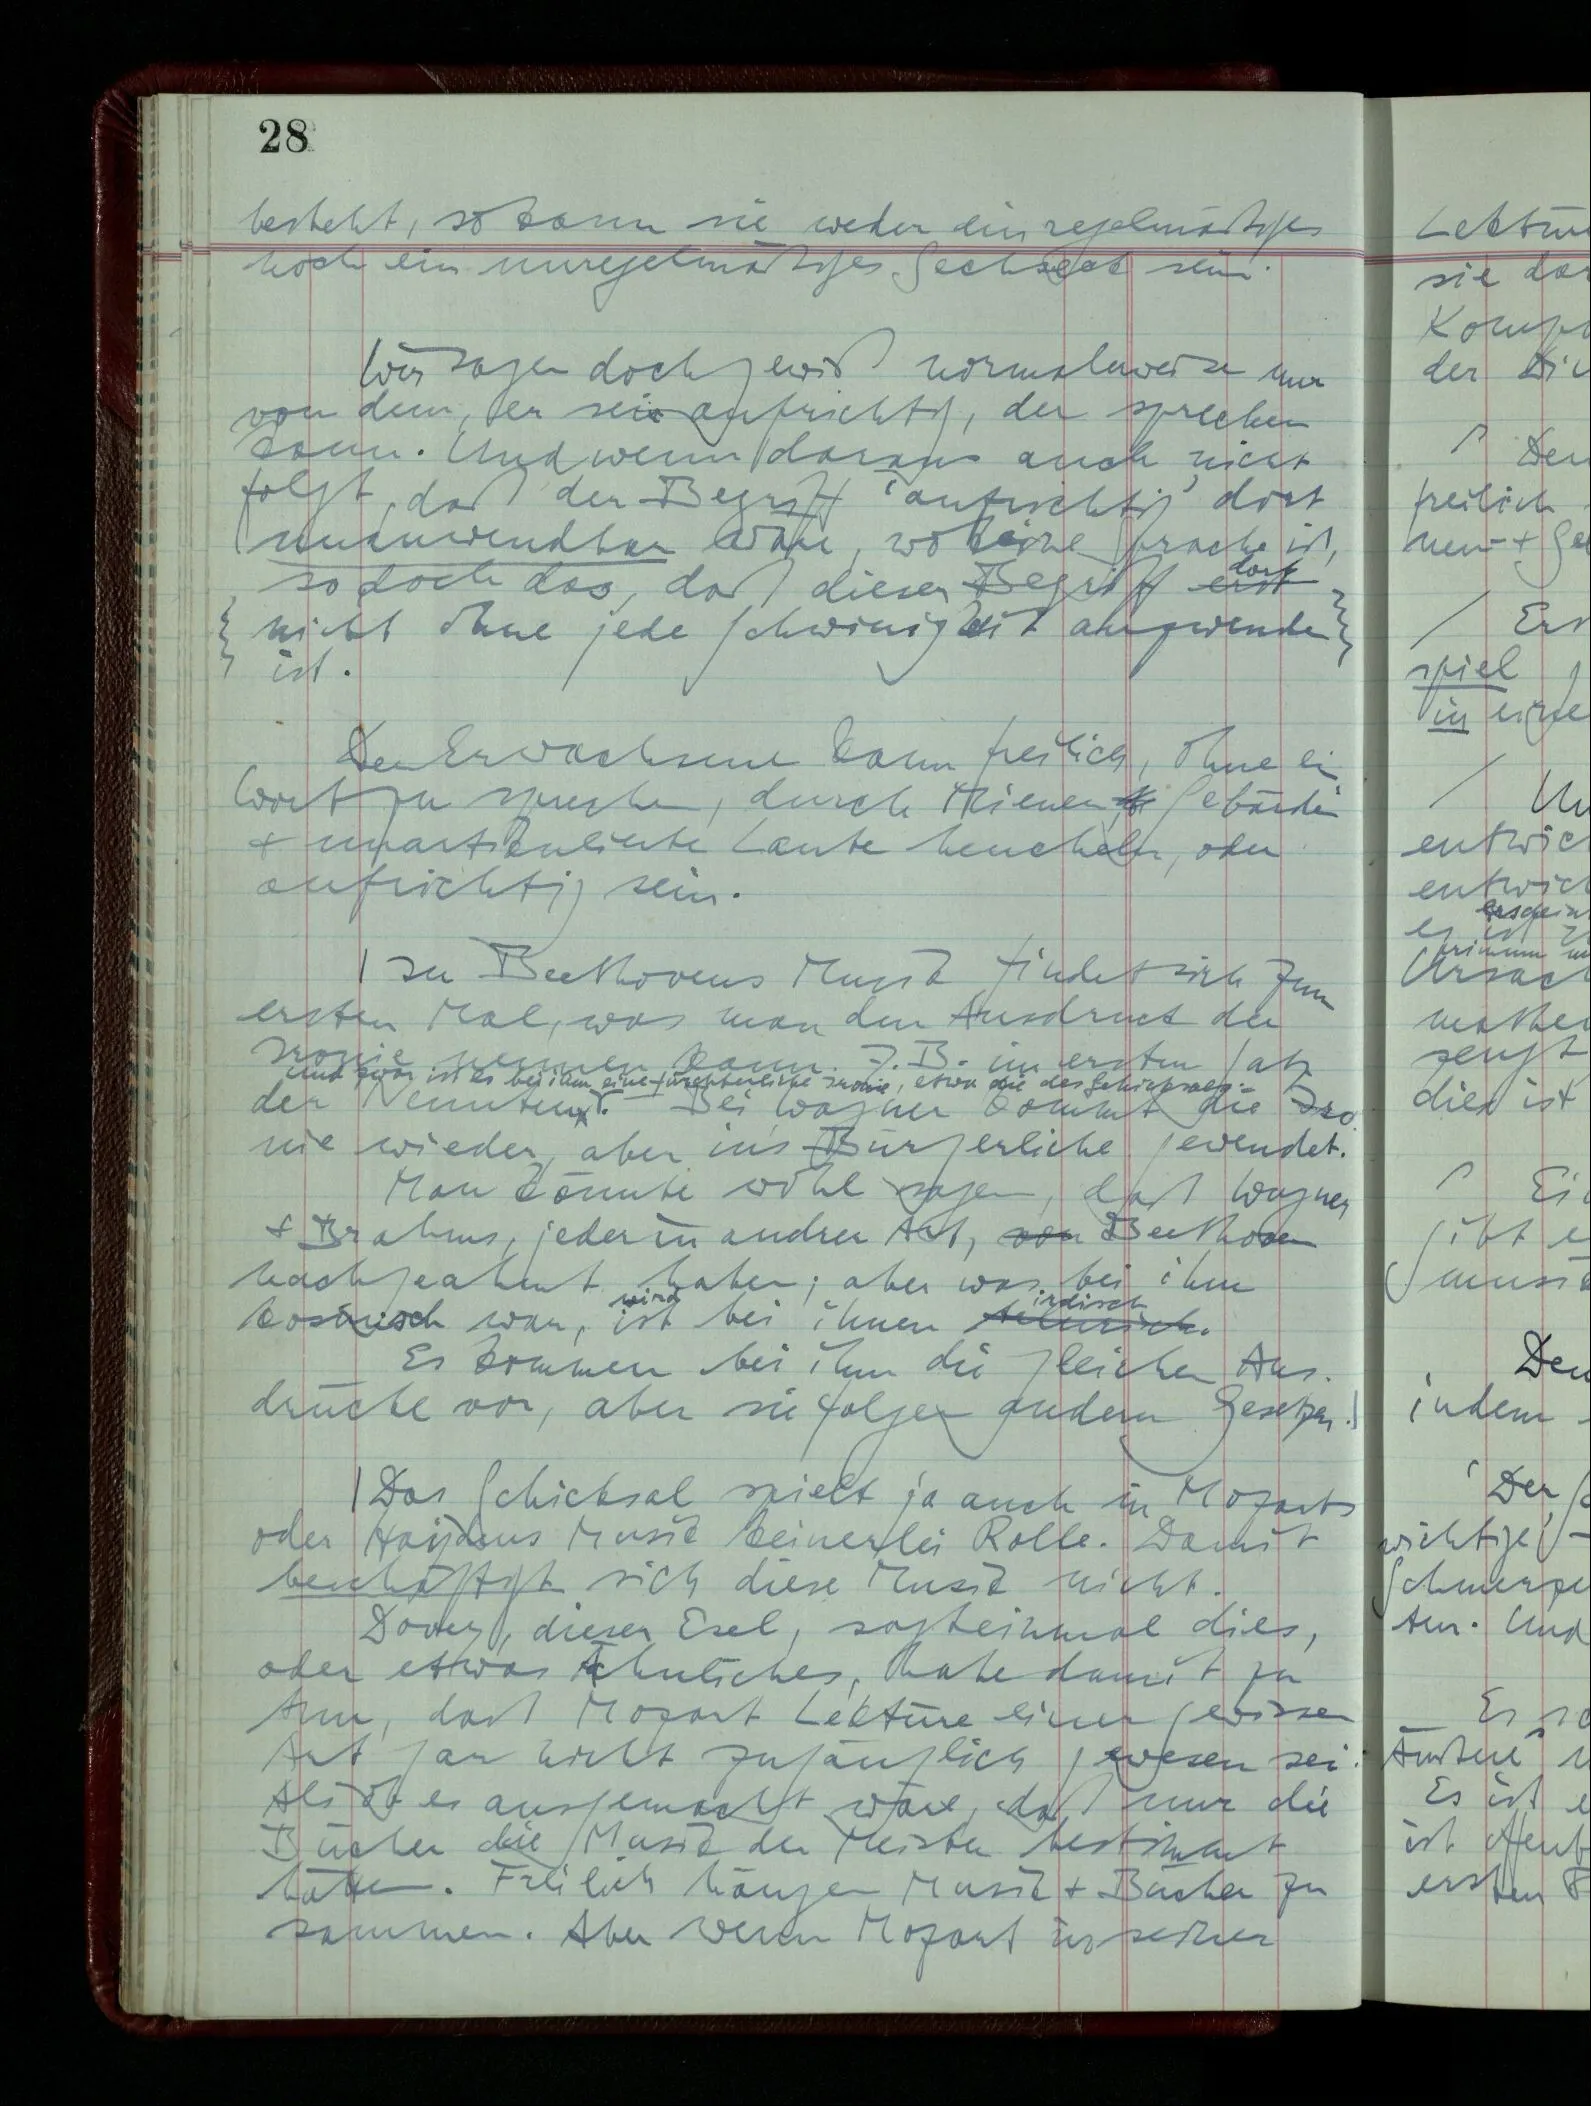 28
besteht, so kann sie weder ein regelmäßiges
noch ein unregelmäßiges Sechseck sein.
Wir sagen doch gewiß normalerweise nur
von dem, er sei aufrichtig, der sprechen
kann. Und wenn daraus auch nicht
folgt, daß der Begriff 'aufrichtig' dort
unanwendbar wäre, wo keine Sprache ist,
so doch das, daß dieser Begriff erst
dort
nicht ohne jede Schwierigkeit anzuwenden
ist.
Der Erwachsene kann freilich, ohne ein
Wort zu sprechen, durch Mienen, Gebärden
+ unartikulierte Laute heucheln, oder
aufrichtig sein.
| In Beethovens Musik findet sich zum
ersten Mal, was man den Ausdruck der
Ironie nennen kann. Z.B. im ersten Satz
und zwar ist es bei ihm eine fürchterliche Ironie, etwa die des Schicksals. –
der Neunten. Bei Wagner kommt die Iro
nie wieder, aber in's Bürgerliche gewendet.
Man könnte wohl sagen, daß Wagner
+ Brahms, jeder in andrer Art, von Beethoven
nachgeahmt haben; aber was bei ihm
kosmisch war, ist bei ihnen
wird irdisch
Es kommen bei ihm die gleichen Aus-
drücke vor, aber sie folgen andern Gesetzen. |
| Das Schicksal spielt ja auch in Mozarts
oder Haydns Musik keinerlei Rolle. Damit
beschäftigt sich diese Musik nicht.
Tovey, dieser Esel, sagt einmal dies,
oder etwas Ähnliches, habe damit zu
tun, daß Mozart Lektüre einer gewissen
Art gar nicht zugänglich gewesen sei.
Als ob es ausgemacht wäre, daß nur die
Bücher die Musik der Meister bestimmt
hätten. Freilich hängen Musik + Bücher zu
sammen. Aber wenn Mozart in seiner
Lektüre
sie
der
Den
freilich
spiel
in
ist
erscheint
primum
dies ist
gibt
Den
indem
Der
wichtige
tun. Und
Es
Es ist
ist
ersten